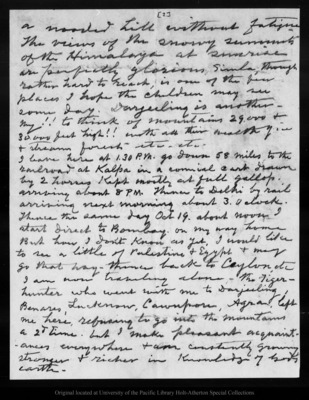 [2]
a wooded hill without fatigue
The views of the snowy summits
of the Himalaya at sunrise
are perfectly glorious. Simla, though
rather hard to reach, is one of the few
places I hope the children may see
some day. Darjeeling is another
!! to think of mountains 29,000 &
30,000 feet high!! with all their wealth of ice
& stream forest etc. etc.
I leave here at 1.30 P.M. go down 58 miles to the
railroad at Kalka in a comical cart drawn
by 2 horses kept mostly at full gallop.
arriving about 8 P.M. Thence to Delhi by rail
arriving next morning about 3. oclock.
Thence the same day Oct 19. about noon I
start direct to Bombay. on my way home
But how I dont know as yet, I would like
to see a little of Palestine & Egypt & may
go that way. thence back to Ceylon, etc
I am now traveling alone. The tiger-
hunter who went with me to Darjeeling
Benares, Lucknow, Cawnpore, Agra left
me here, refusing to go into the mountains
a 2d time. but I make pleasant acquaint-
ances everywhere & am constantly growing
stronger & richer in knowledge of Gods
earth.
Original located at University of the Pacific Library Holt-Atherton Special Collections